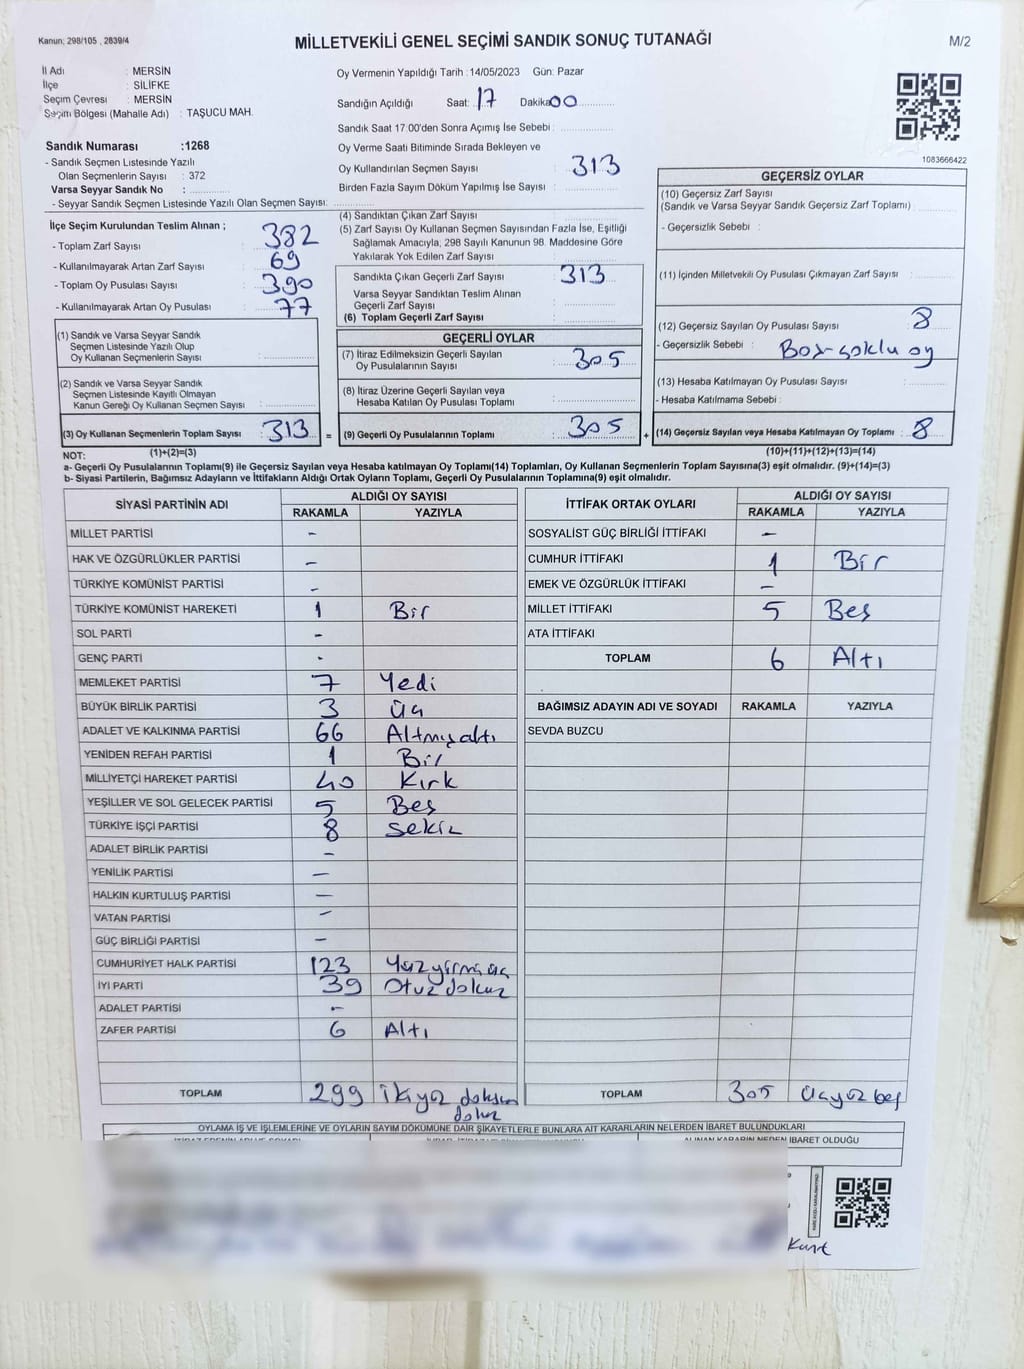 Kanun: 298/105 , 2839/4
MİLLETVEKİLİ GENEL SEÇİMİ SANDIK SONUÇ TUTANAĞI
M/2
İl Adı : MERSİN
İlçe : SİLİFKE
Seçim Çevresi : MERSİN
Seçim Bölgesi (Mahalle Adı) : TAŞUCU MAH.
Oy Vermenin Yapıldığı Tarih :14/05/2023 Gün: Pazar
Sandığın Açıldığı Saat: 17 Dakika 00
Sandık Saat 17:00'den Sonra Açımış İse Sebebi :
Sandık Numarası :1268
- Sandık Seçmen Listesinde Yazılı
Olan Seçmenlerin Sayısı : 372
Varsa Seyyar Sandık No :
- Seyyar Sandık Seçmen Listesinde Yazılı Olan Seçmen Sayısı:
Oy Verme Saati Bitiminde Sırada Bekleyen ve
Oy Kullandırılan Seçmen Sayısı : 313
Birden Fazla Sayım Döküm Yapılmış İse Sayısı :
1083666422
İlçe Seçim Kurulundan Teslim Alınan ;
- Toplam Zarf Sayısı : 382
- Kullanılmayarak Artan Zarf Sayısı : 69
- Toplam Oy Pusulası Sayısı : 390
- Kullanılmayarak Artan Oy Pusulası : 77
(1) Sandık ve Varsa Seyyar Sandık
Seçmen Listesinde Yazılı Olup
Oy Kullanan Seçmenlerin Sayısı :
(2) Sandık ve Varsa Seyyar Sandık
Seçmen Listesinde Kayıtlı Olmayan
Kanun Gereği Oy Kullanan Seçmen Sayısı :
(3) Oy Kullanan Seçmenlerin Toplam Sayısı : 313 =
(4) Sandıktan Çıkan Zarf Sayısı :
(5) Zarf Sayısı Oy Kullanan Seçmen Sayısından Fazla İse, Eşitliği
Sağlamak Amacıyla, 298 Sayılı Kanunun 98. Maddesine Göre
Yakılarak Yok Edilen Zarf Sayısı :
Sandıkta Çıkan Geçerli Zarf Sayısı : 313
Varsa Seyyar Sandıktan Teslim Alınan
Geçerli Zarf Sayısı :
(6) Toplam Geçerli Zarf Sayısı :
GEÇERLİ OYLAR
(7) İtiraz Edilmeksizin Geçerli Sayılan
Oy Pusulalarının Sayısı : 305
(8) İtiraz Üzerine Geçerli Sayılan veya
Hesaba Katılan Oy Pusulası Toplamı :
(9) Geçerli Oy Pusulalarının Toplamı : 305 +
GEÇERSİZ OYLAR
(10) Geçersiz Zarf Sayısı
(Sandık ve Varsa Seyyar Sandık Geçersiz Zarf Toplamı) :
- Geçersizlik Sebebi :
(11) İçinden Milletvekili Oy Pusulası Çıkmayan Zarf Sayısı :
(12) Geçersiz Sayılan Oy Pusulası Sayısı : 8
- Geçersizlik Sebebi : Boş-çoklu oy
(13) Hesaba Katılmayan Oy Pusulası Sayısı :
- Hesaba Katılmama Sebebi :
(14) Geçersiz Sayılan veya Hesaba Katılmayan Oy Toplamı : 8
NOT: (1)+(2)=(3) (10)+(11)+(12)+(13)=(14)
a- Geçerli Oy Pusulalarının Toplamı(9) ile Geçersiz Sayılan veya Hesaba katılmayan Oy Toplamı(14) Toplamları, Oy Kullanan Seçmenlerin Toplam Sayısına(3) eşit olmalıdır. (9)+(14)=(3)
b- Siyasi Partilerin, Bağımsız Adayların ve İttifakların Aldığı Ortak Oyların Toplamı, Geçerli Oy Pusulalarının Toplamına(9) eşit olmalıdır.
SİYASİ PARTİNİN ADI ALDIĞI OY SAYISI
RAKAMLA YAZIYLA
MİLLET PARTİSİ -
HAK VE ÖZGÜRLÜKLER PARTİSİ -
TÜRKİYE KOMÜNİST PARTİSİ -
TÜRKİYE KOMÜNİST HAREKETİ 1 Bir
SOL PARTİ -
GENÇ PARTİ -
MEMLEKET PARTİSİ 7 Yedi
BÜYÜK BİRLİK PARTİSİ 3 Üç
ADALET VE KALKINMA PARTİSİ 66 Altmışaltı
YENİDEN REFAH PARTİSİ 1 Bir
MİLLİYETÇİ HAREKET PARTİSİ 40 Kırk
YEŞİLLER VE SOL GELECEK PARTİSİ 5 Beş
TÜRKİYE İŞÇİ PARTİSİ 8 Sekiz
ADALET BİRLİK PARTİSİ -
YENİLİK PARTİSİ -
HALKIN KURTULUŞ PARTİSİ -
VATAN PARTİSİ -
GÜÇ BİRLİĞİ PARTİSİ -
CUMHURİYET HALK PARTİSİ 123 Yüzyirmiüç
İYİ PARTİ 39 Otuzdokuz
ADALET PARTİSİ -
ZAFER PARTİSİ 6 Altı
TOPLAM 299 İkiyüz doksan
dokuz
İTTİFAK ORTAK OYLARI ALDIĞI OY SAYISI
RAKAMLA YAZIYLA
SOSYALİST GÜÇ BİRLİĞİ İTTİFAKI -
CUMHUR İTTİFAKI 1 Bir
EMEK VE ÖZGÜRLÜK İTTİFAKI -
MİLLET İTTİFAKI 5 Beş
ATA İTTİFAKI
TOPLAM 6 Altı
BAĞIMSIZ ADAYIN ADI VE SOYADI RAKAMLA YAZIYLA
SEVDA BUZCU
TOPLAM 305 Üçyüz beş
OYLAMA İŞ VE İŞLEMLERİNE VE OYLARIN SAYIM DÖKÜMÜNE DAİR ŞİKAYETLERLE BUNLARA AİT KARARLARIN NELERDEN İBARET BULUNDUKLARI
ALINAN KARARIN NEDEN İBARET OLDUĞU
Kurt